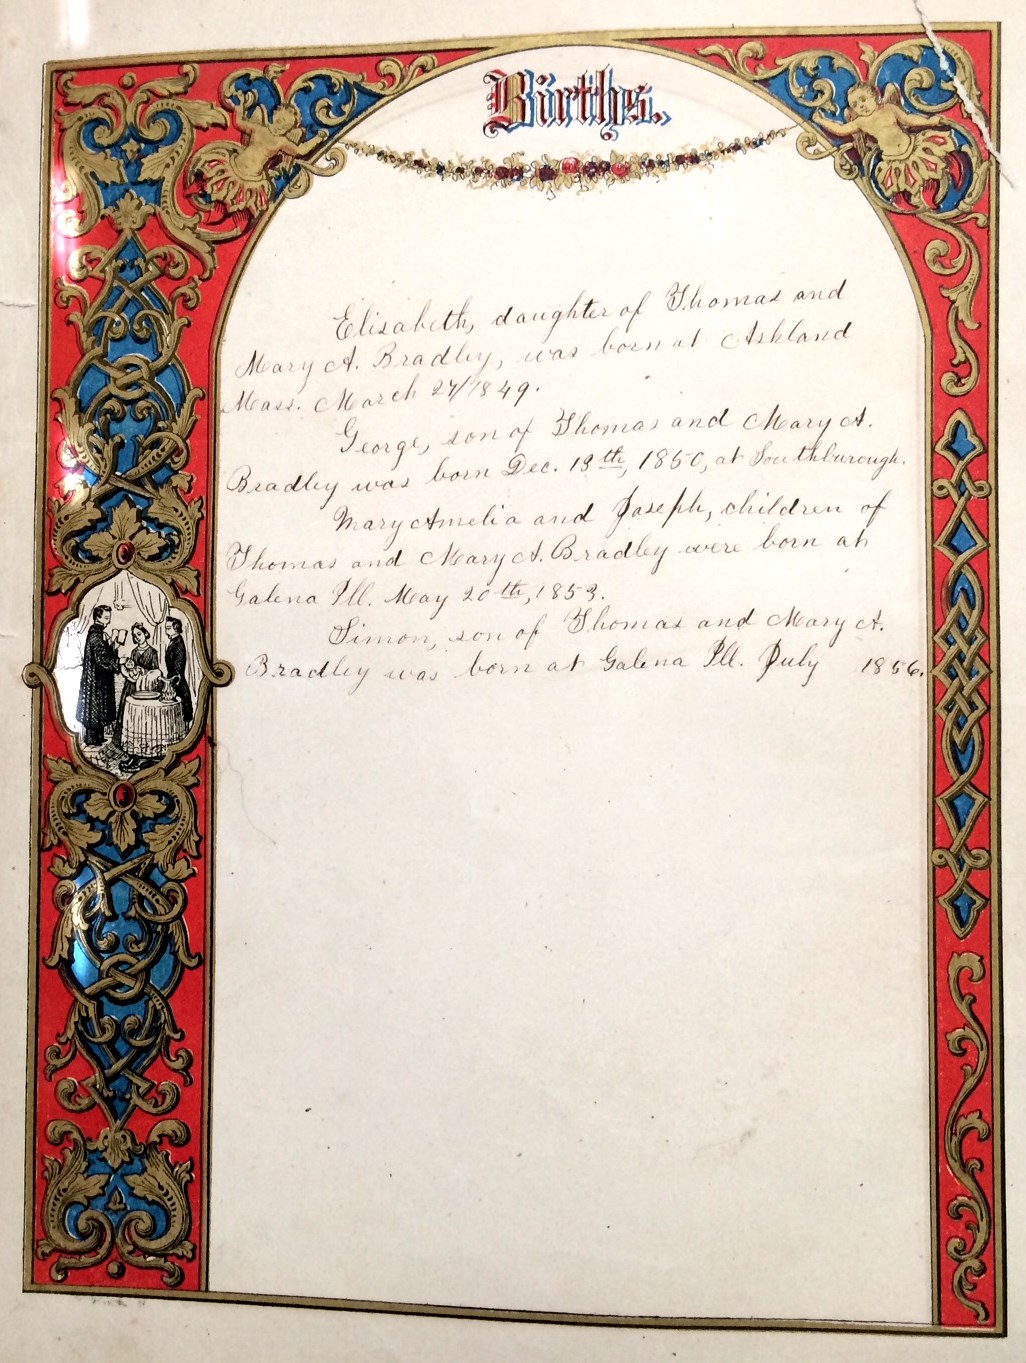 Births.
Elisabeth, daughter of Thomas and
Mary A. Bradley, was born at Ashland
Mass. March 27/1849.
George, son of Thomas and Mary A.
Bradley was born Dec. 13th, 1850, at Southborough.
Mary Amelia and Joseph, children of
Thomas and Mary A. Bradley were born at
Galena Ill. May 20th, 1853.
Simon, son of Thomas and Mary A.
Bradley was born at Galena Ill. July 1856.